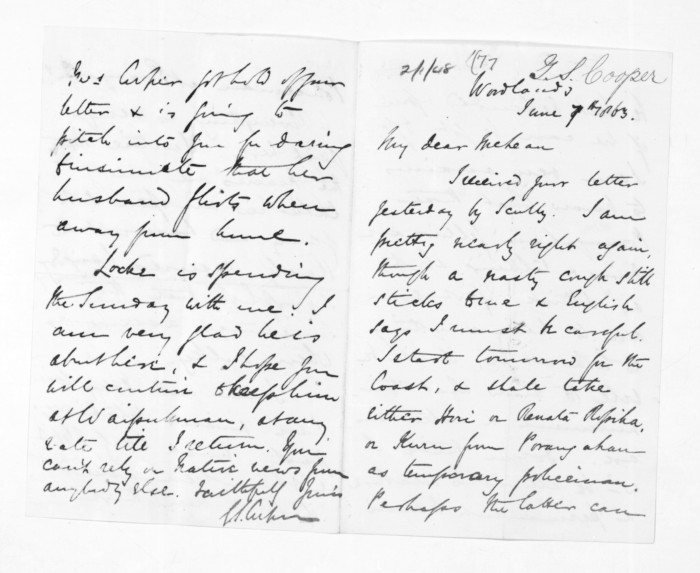 2/1/48 177 G. S. Cooper
Woodlands
June 7th 1863.
My dear McLean
I received your letter
yesterday by Scully. I am
pretty nearly right again,
though a nasty cough still
sticks to me & English
says I must be careful.
I start tomorrow for the
Coast, & shall take
either Hori or Renata Ropiha,
or Kuru from Porangahau
as temporary policeman.
Perhaps the latter can
Mrs Cooper got hold of your
letter & is going to
pitch into you for daring
to insinuate that her
husband flirts when
away from home.
Locke is spending
the Sunday with me. I
am very glad he is
about here, & I hope you
will continue to keep him
at Waipukurau, at any
rate till I return. You
can't rely on Native news from
anybody else. Faithfully Yours
G S Cooper